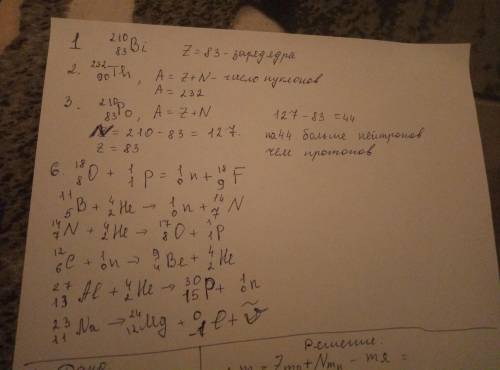 1 ²¹⁰₈₃Bi Z = 83 - заряд ядра
2. ²³²₉₀Th, A = Z+N - число нуклонов
A = 232
3. ²¹⁰₈₃Po, A = Z+N
N = 210 - 83 = 127.
Z = 83
127 - 83 = 44
на 44 больше нейтронов
чем протонов
6. ¹⁸₈O + ¹₁p = ¹₀n + ¹⁸₉F
¹¹₅B + ⁴₂He → ¹₀n + ¹⁴₇N
¹⁴₇N + ⁴₂He → ¹⁷₈O + ¹₁p
¹²₆C + ¹₀n → ⁹₄Be + ⁴₂He
²⁷₁₃Al + ⁴₂He → ³⁰₁₅P + ¹₀n
²³₁₁Na → ²⁴₁₂Mg + ⁰₋₁e + ṽ
Решение:
m = Zmp + Nmn - mя =